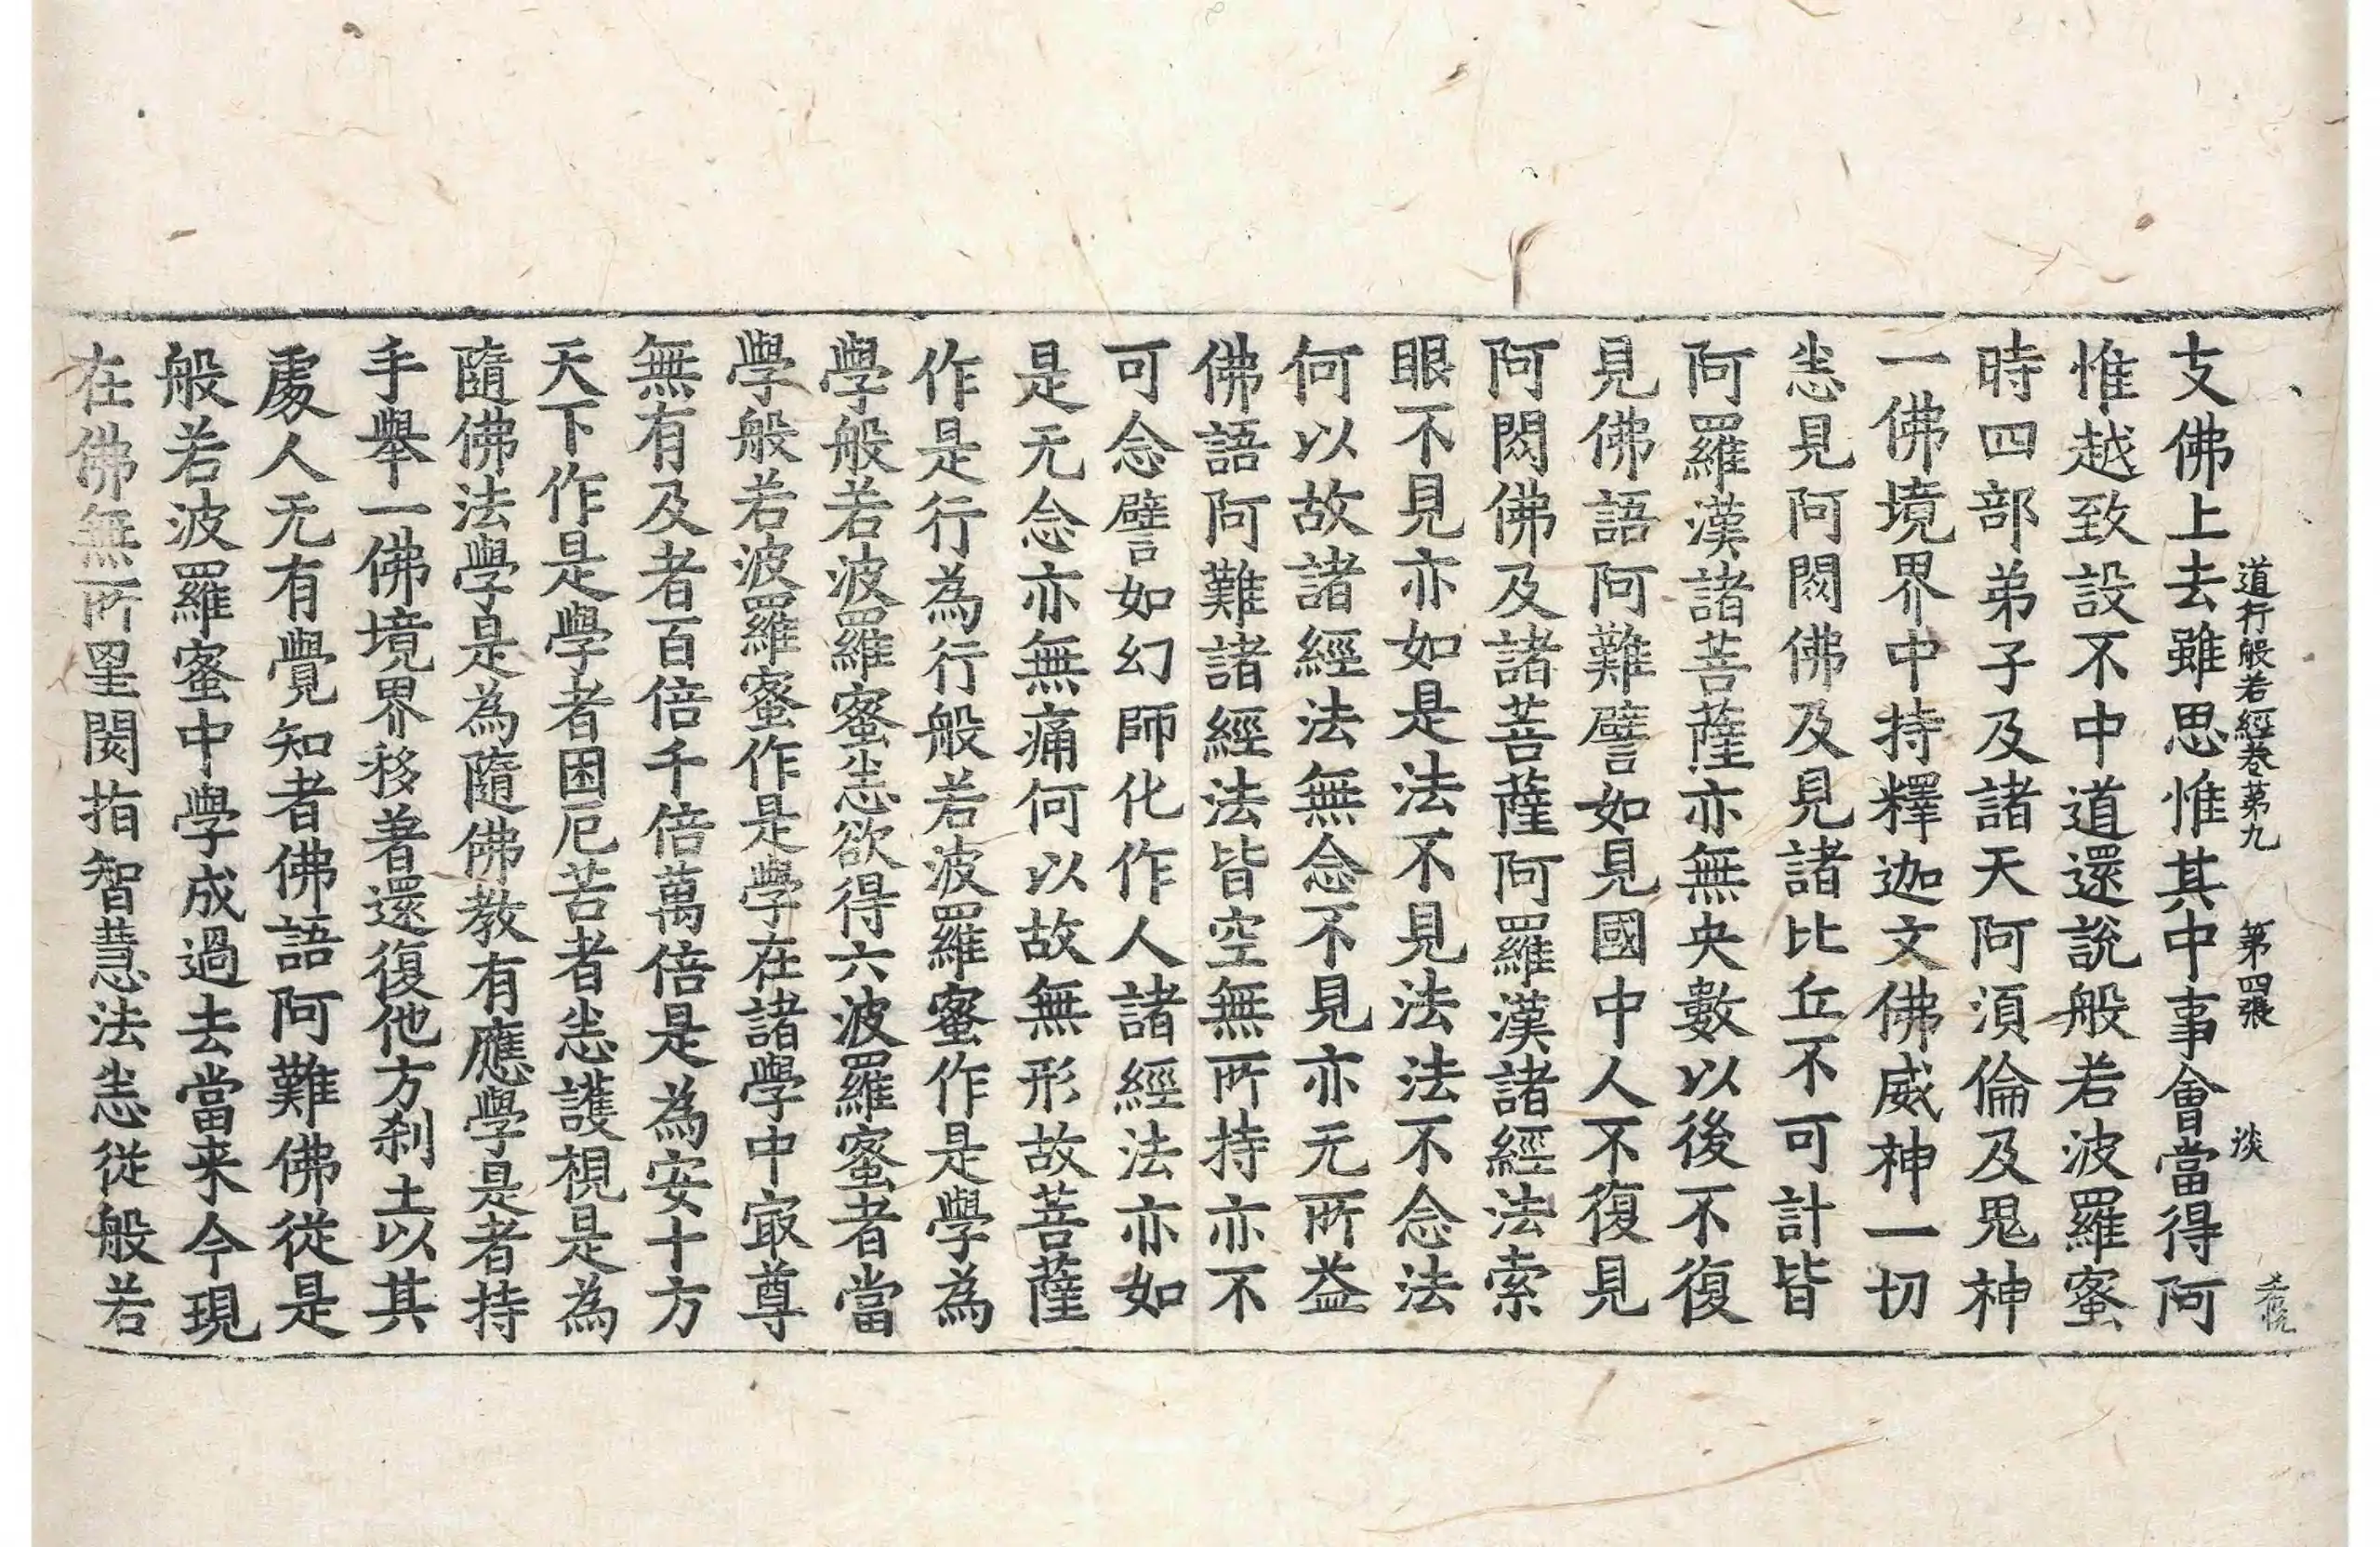 道行般若經卷苐九　第四張　淡
支佛上去雖思惟其中事會當得阿
惟越致設不中道還說般若波羅蜜
時四部弟子及諸天阿湏倫及鬼神
一佛境界中持釋迦文佛威神一切
悉見阿閦佛及見諸比丘不可計皆
阿羅漢諸菩薩亦無央數以後不復
見佛語阿難譬如見國中人不復見
阿閦佛及諸菩薩阿羅漢諸經法索
眼不見亦如是法不見法法不念法
何以故諸經法無念不見亦无所益
佛語阿難諸經法皆空無所持亦不
可念譬如幻師化作人諸經法亦如
是无念亦無痛何以故無形故菩薩
作是行為行般若波羅蜜作是學為
學般若波羅蜜悉欲得六波羅蜜者當
學般若波羅蜜作是學在諸學中㝡尊
無有及者百倍千倍萬倍是為安十方
天下作是學者困厄苦者悉護視是為
隨佛法學是為隨佛教有應學是者持
手舉一佛境界移著還復他方剎土以其
處人无有覺知者佛語阿難佛從是
般若波羅蜜中學成過去當来今現
在佛無所罣閡指智慧法悉從般若